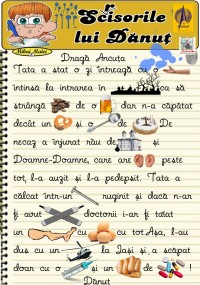 Scisorile
lui Dănuț
Mihai Matei
Dragă Ancuța
Tata a stat o zi întreagă cu o
întinsă la intrarea în ca să
strângă de o dar n-a căpătat
decât un și o de De
necaz a înjurat rău de și
Doamne-Doamne, care are peste
tot, l-a auzit și l-a pedepsit. Tata a
călcat într-un ruginit și dacă n-ar
fi avut doctorii i-ar fi tăiat
un cu cu tot. Așa, l-au
dus cu un la Iași și a scăpat
doar cu o și un de !
Dănuț